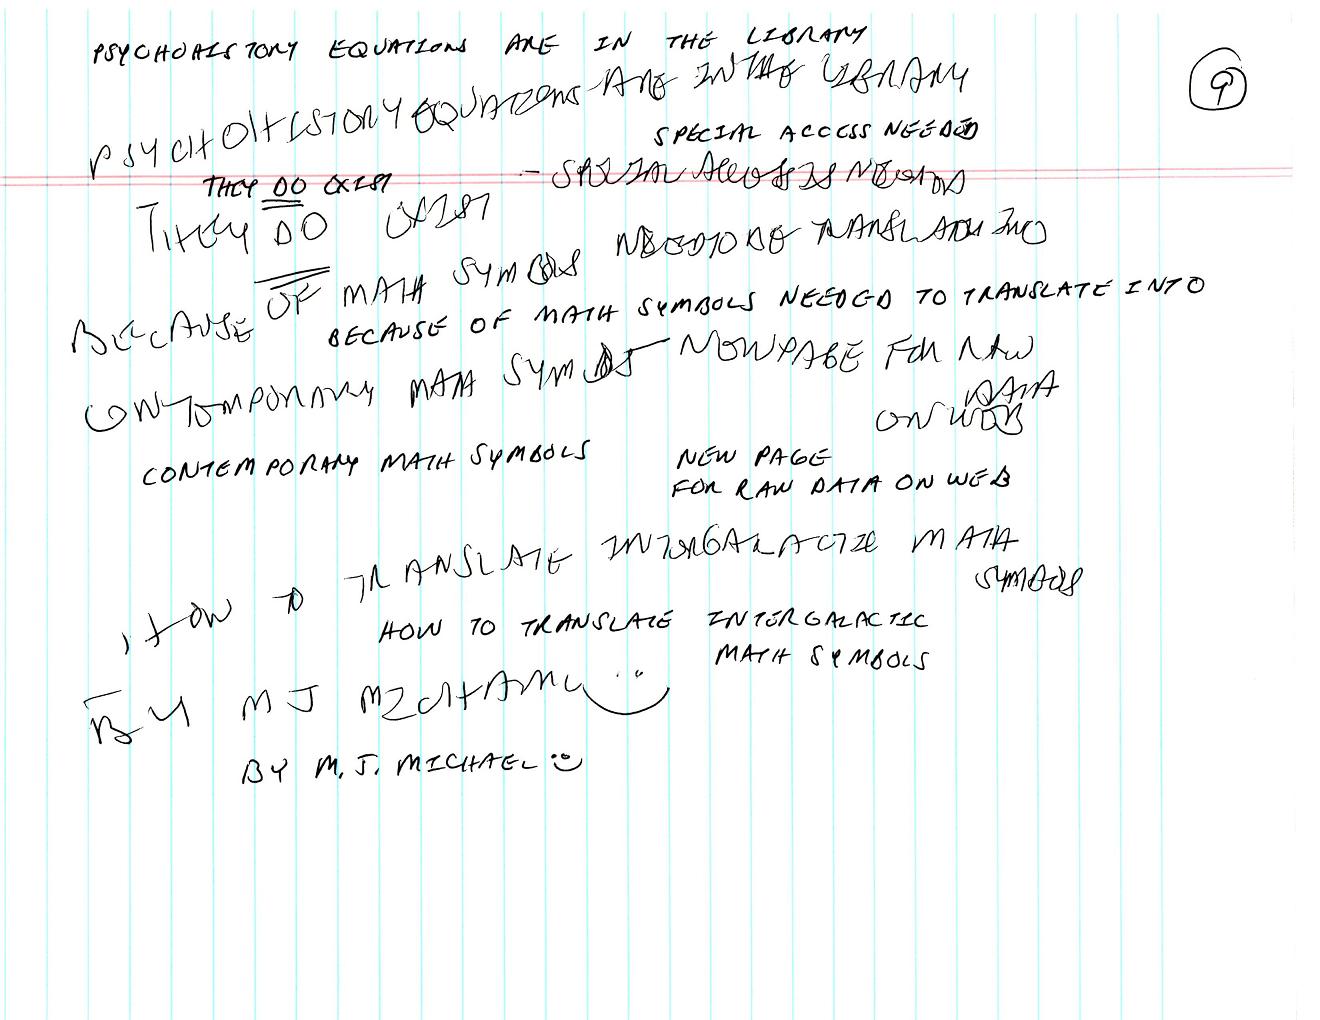 PSYCHOHISTORY EQUATIONS ARE IN THE LIBRARY
9
PSYCHOHISTORY EQUATIONS ARE IN THE LIBRARY
SPECIAL ACCESS NEEDED
THEY DO EXIST
- SPECIAL ACCESS IS NEEDED
THEY DO EXIST
BECAUSE OF MATH SYMBOLS NEED TO BE TRANSLATED INTO
BECAUSE OF MATH SYMBOLS NEEDED TO TRANSLATE INTO
CONTEMPORARY MATH SYMBOLS - NEW PAGE FOR RAW
DATA
ON WEB
CONTEMPORARY MATH SYMBOLS
NEW PAGE
FOR RAW DATA ON WEB
HOW TO TRANSLATE INTERGALACTIC MATH
SYMBOLS
HOW TO TRANSLATE INTERGALACTIC
MATH SYMBOLS
BY M J MICHAEL
BY M. J. MICHAEL